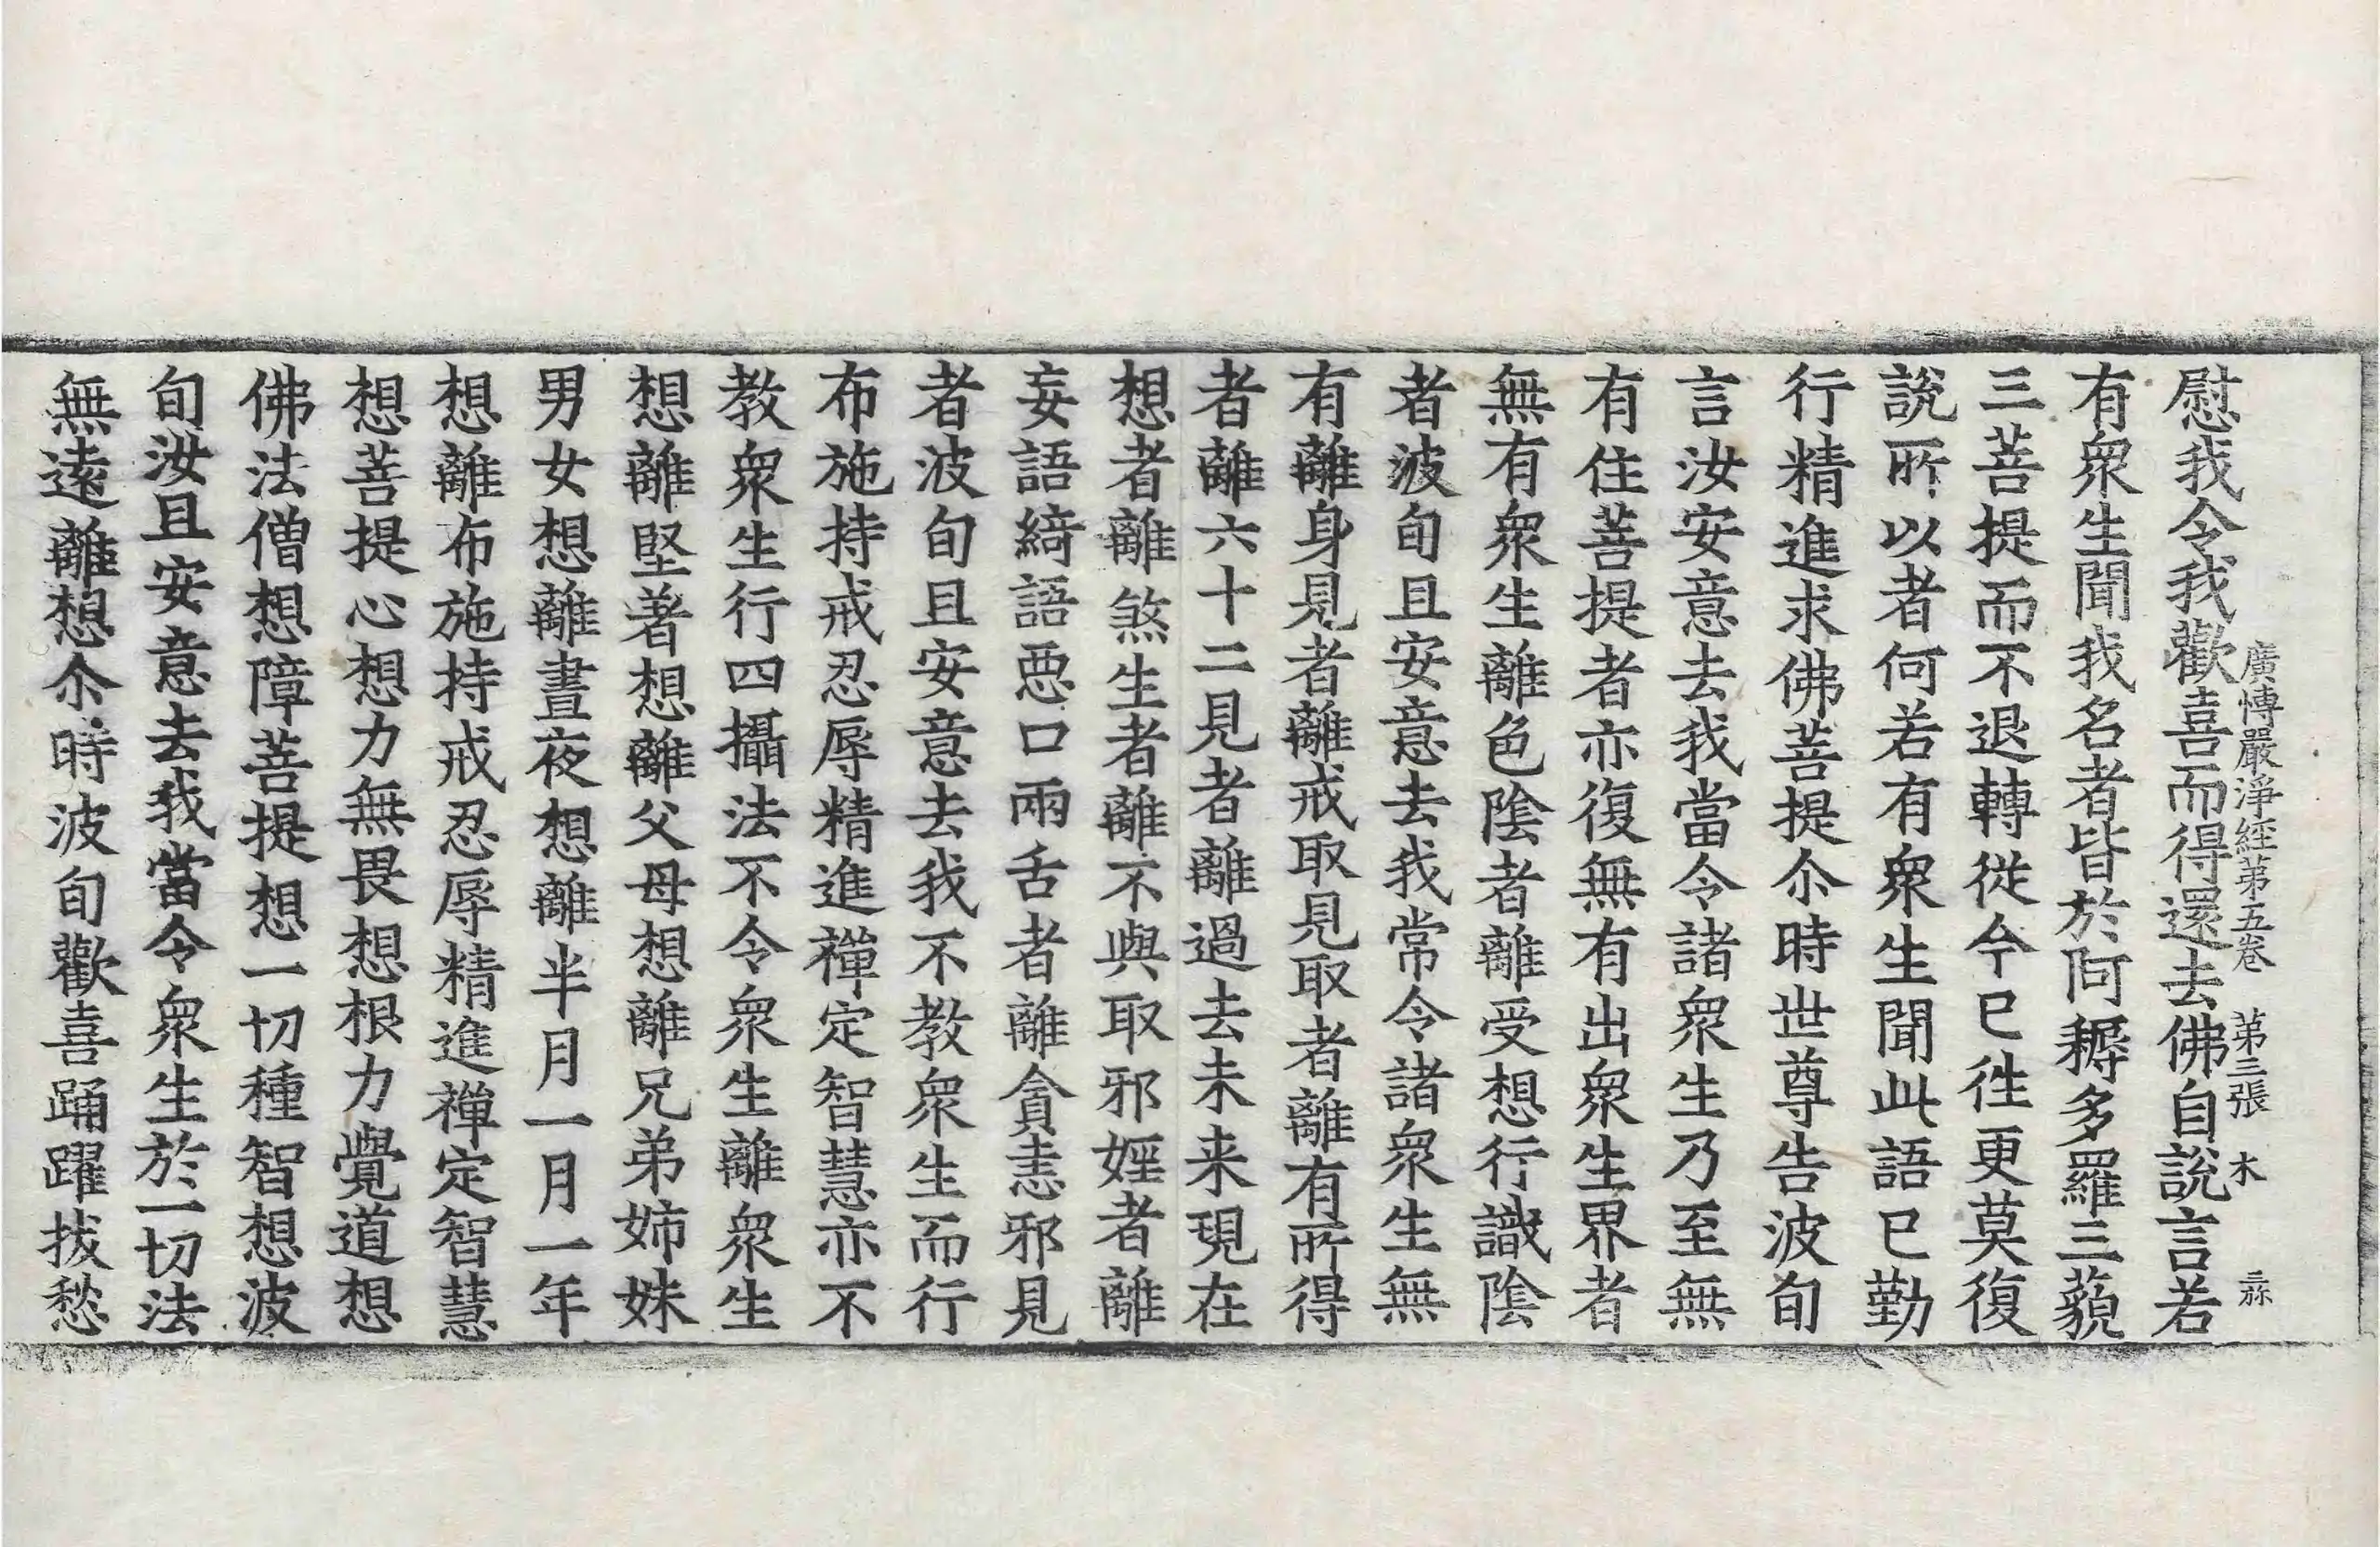 廣博嚴淨經第五卷 第三張 木
慰我令我歡喜而得還去佛自說言若
有衆生聞我名者皆於阿耨多羅三藐
三菩提而不退轉從今已徃更莫復
說所以者何若有衆生聞此語已勤
行精進求佛菩提尒時世尊告波旬
言汝安意去我當令諸衆生乃至無
有住菩提者亦復無有出衆生界者
無有衆生離色陰者離受想行識陰
者波旬且安意去我常令諸衆生無
有離身見者離戒取見取者離有所得
者離六十二見者離過去未来現在
想者離煞生者離不與取邪婬者離
妄語綺語惡口兩舌者離貪恚邪見
者波旬且安意去我不教衆生而行
布施持戒忍辱精進禪定智慧亦不
教衆生行四攝法不令衆生離衆生
想離堅著想離父母想離兄弟姉妹
男女想離晝夜想離半月一月一年
想離布施持戒忍辱精進禪定智慧
想菩提心想力無畏想根力覺道想
佛法僧想障菩提想一切種智想波
旬汝且安意去我當令衆生於一切法
無遠離想尒時波旬歡喜踊躍拔愁